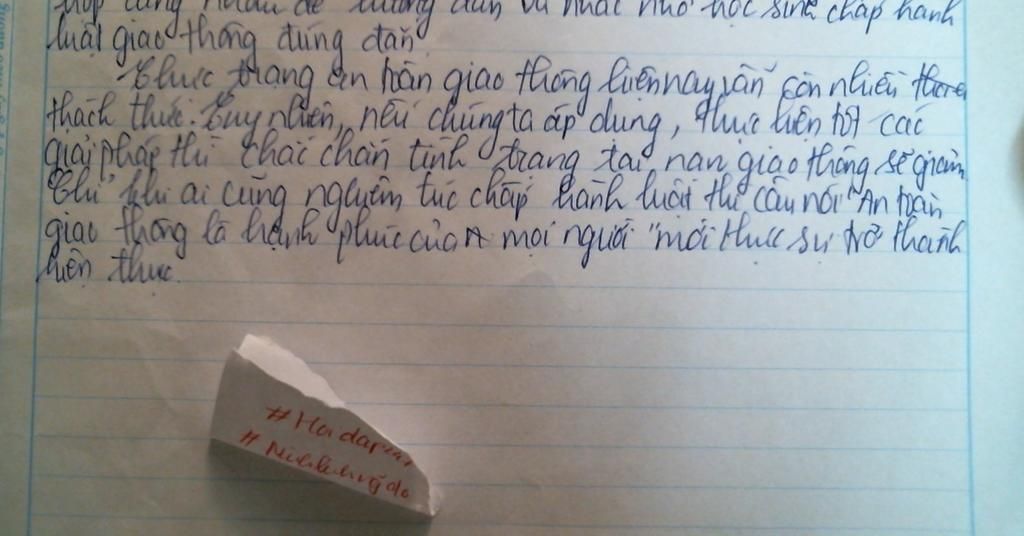 cùng nhau để hướng dẫn và nhắc nhở học sinh chấp hành
luật giao thông đúng đắn
Thực trạng an toàn giao thông hiện nay vẫn còn nhiều
thách thức. Tuy nhiên, nếu chúng ta áp dụng, thực hiện tốt các
giải pháp thì chắc chắn tình trạng tai nạn giao thông sẽ giảm.
Chỉ khi ai cũng nghiêm túc chấp hành luật thì câu nói "An toàn
giao thông là hạnh phúc của mọi người" mới thực sự trở thành
hiện thực.
#Hoidap247